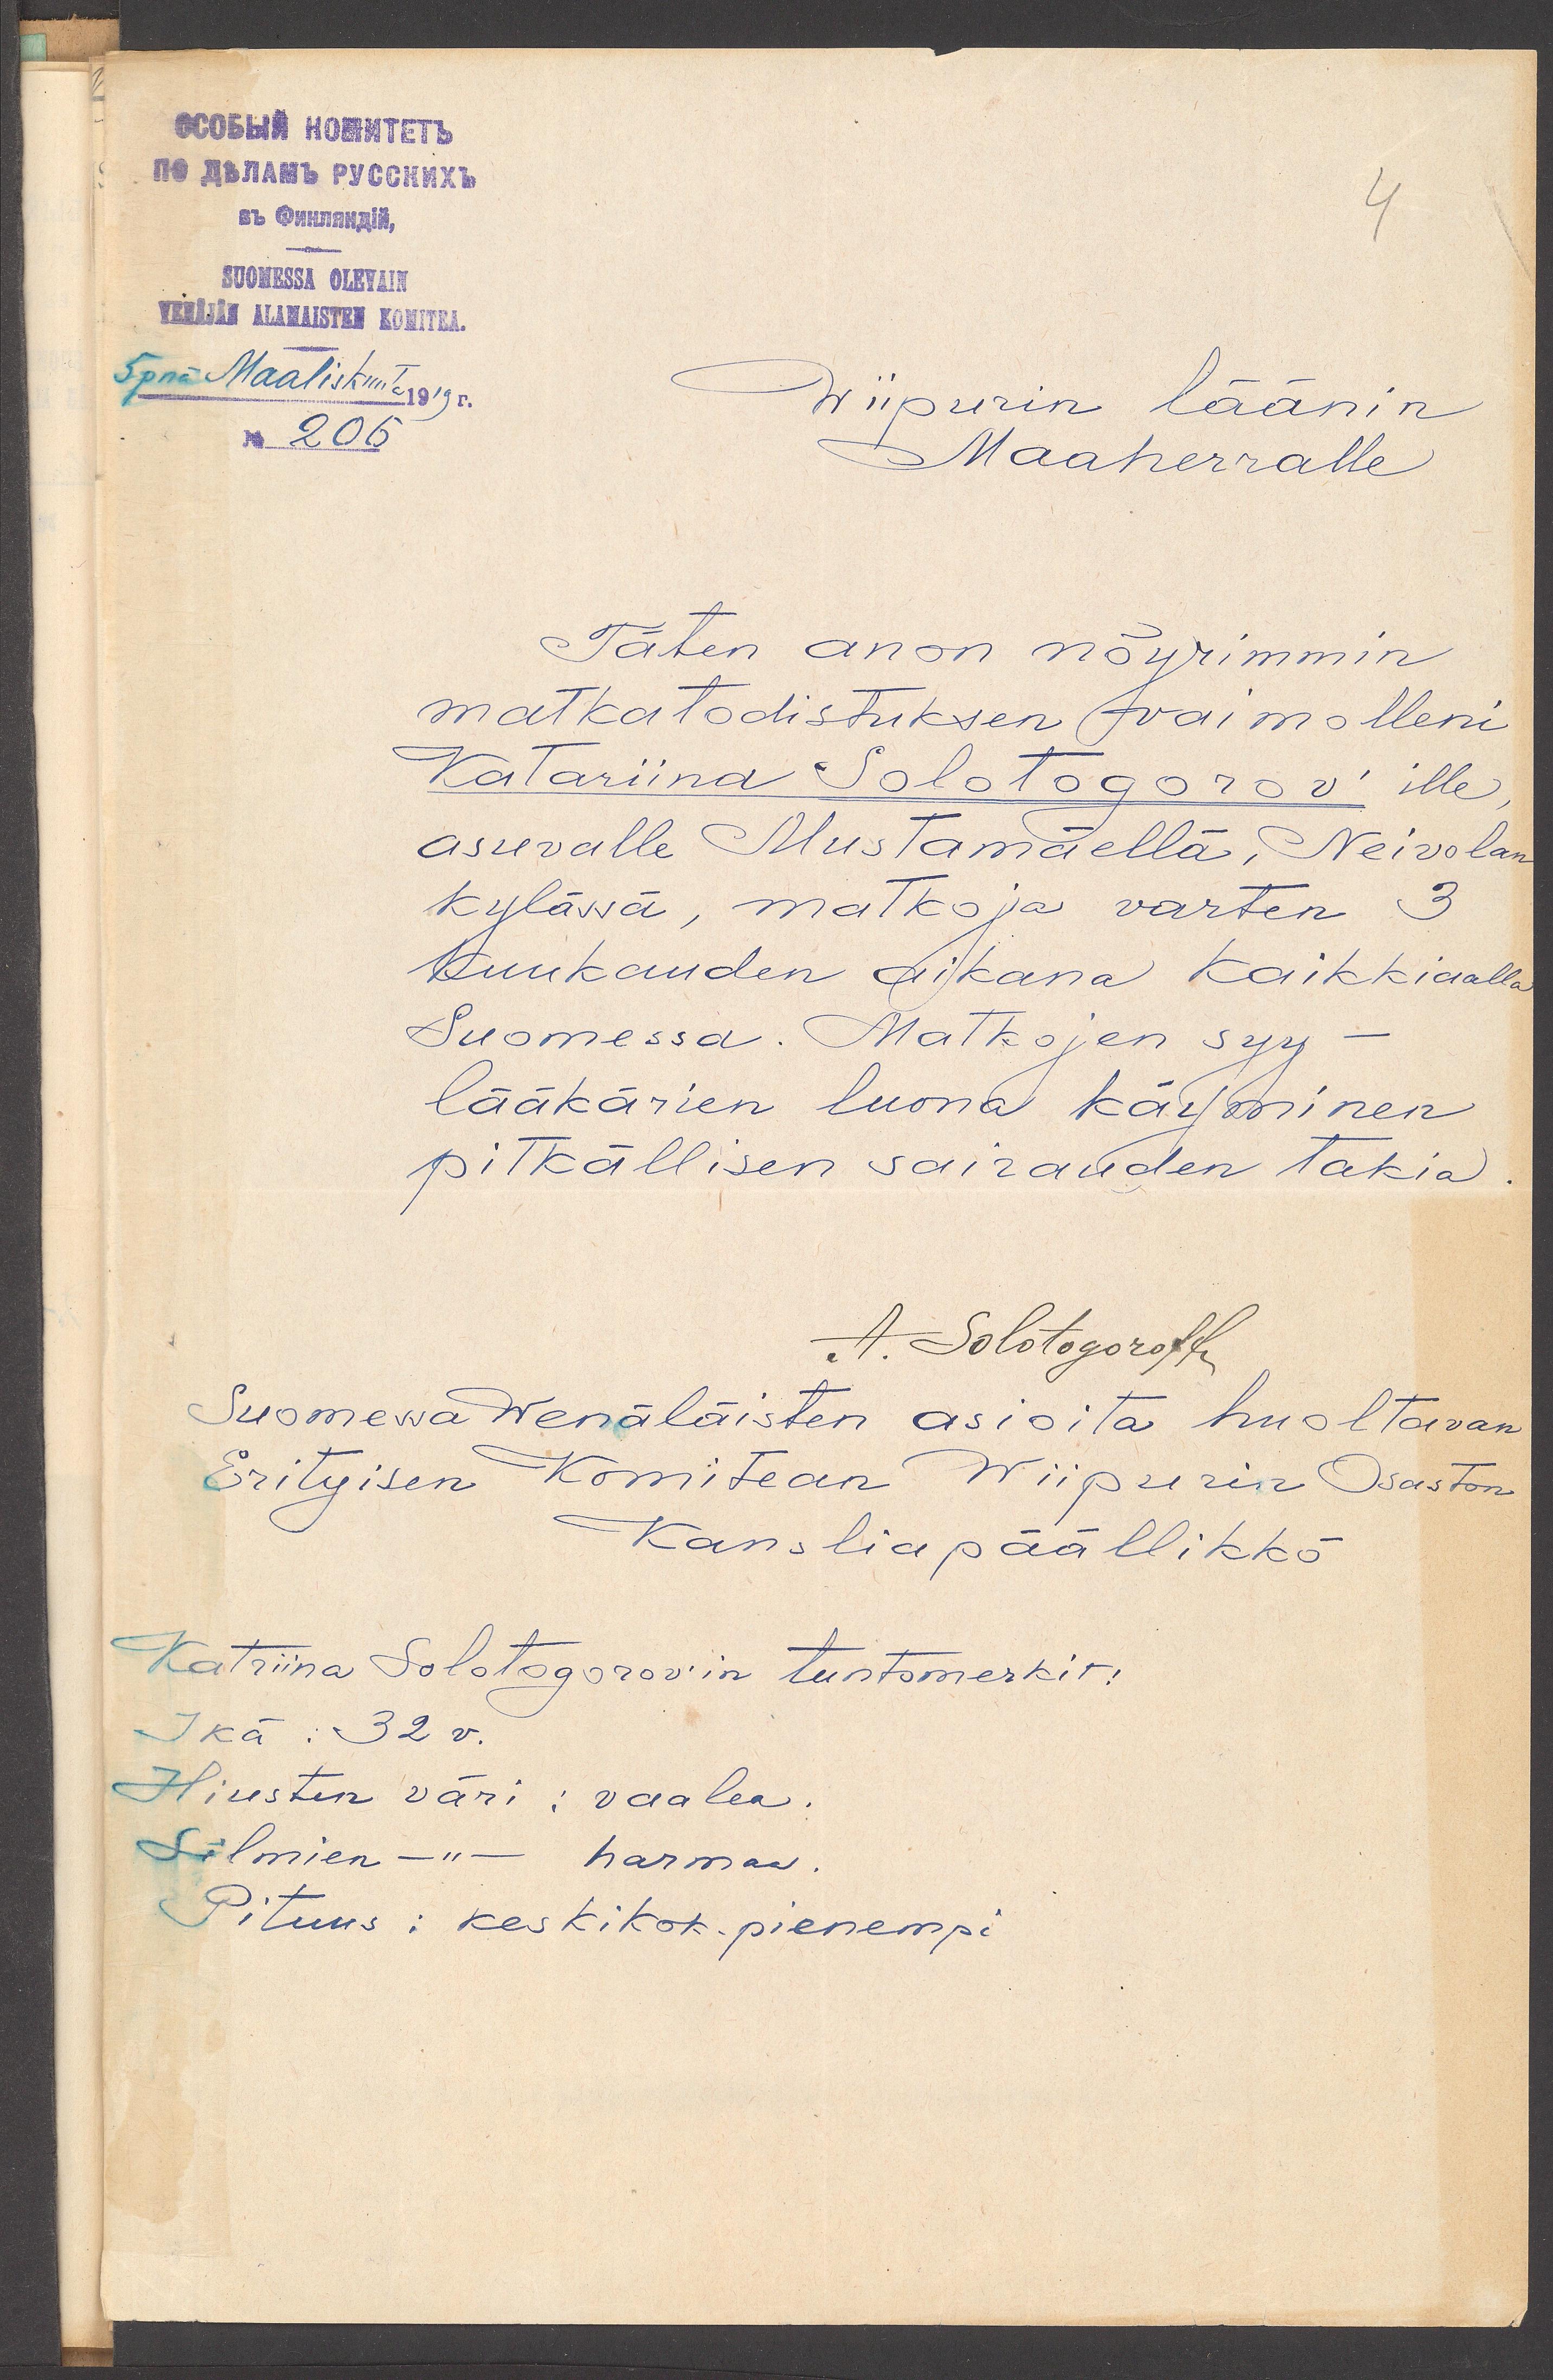 ОСОБЫЙ КОМИТЕТЪ
ПО ДѢЛАМЪ РУССКИХЪ
въ Финляндій,
SUOMESSA OLEVAIN
VENÄJÄN ALAMAISTEN KOMITEA.
5 pnä Maaliskuuta 1919 г.
№ 206
4
Wiipurin läänin
Maaherralle
Täten anon nöyrimmin
matkatodistuksen vaimolleni
Katariina Solotogorov'ille,
asuvalle Mustamäellä, Neivolan
kylässä, matkoja varten 3
kuukauden aikana kaikkiaalla
Suomessa. Matkojen syy –
lääkärien luona käyminen
pitkällisen sairauden takia.
A. Solotogoroff
Suomessa Wenäläisten asioita huoltavan
Erityisen Komitean Wiipurin Osaston
Kansliapäällikkö
Katriina Solotogorov'in tuntomerkit:
Ikä : 32 v.
Hiusten väri : vaalea.
Silmien –"– harmaa.
Pituus : keskikok. pienempi